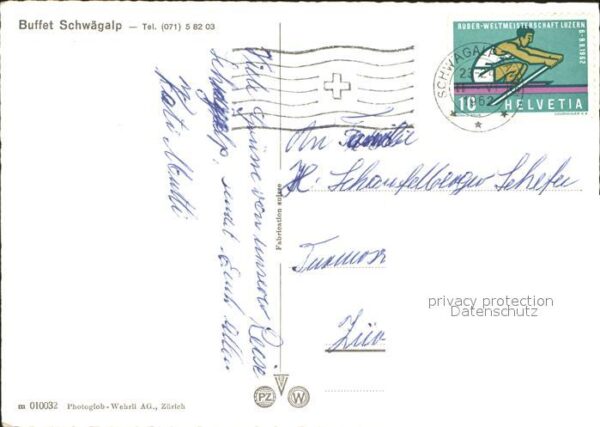 Buffet Schwägalp — Tel. (071) 5 82 03
RUDER-WELTMEISTERSCHAFT LUZERN
6-9.9.1962
10 HELVETIA
SCHWÄGALP
An Familie
H. Schaufelberger Schefer
Zür
von unserer Reise
Schwägalp, sendet Euch allen
Fabrication suisse
privacy protection
Datenschutz
PZ W
m 010032 Photoglob-Wehrli AG., Zürich